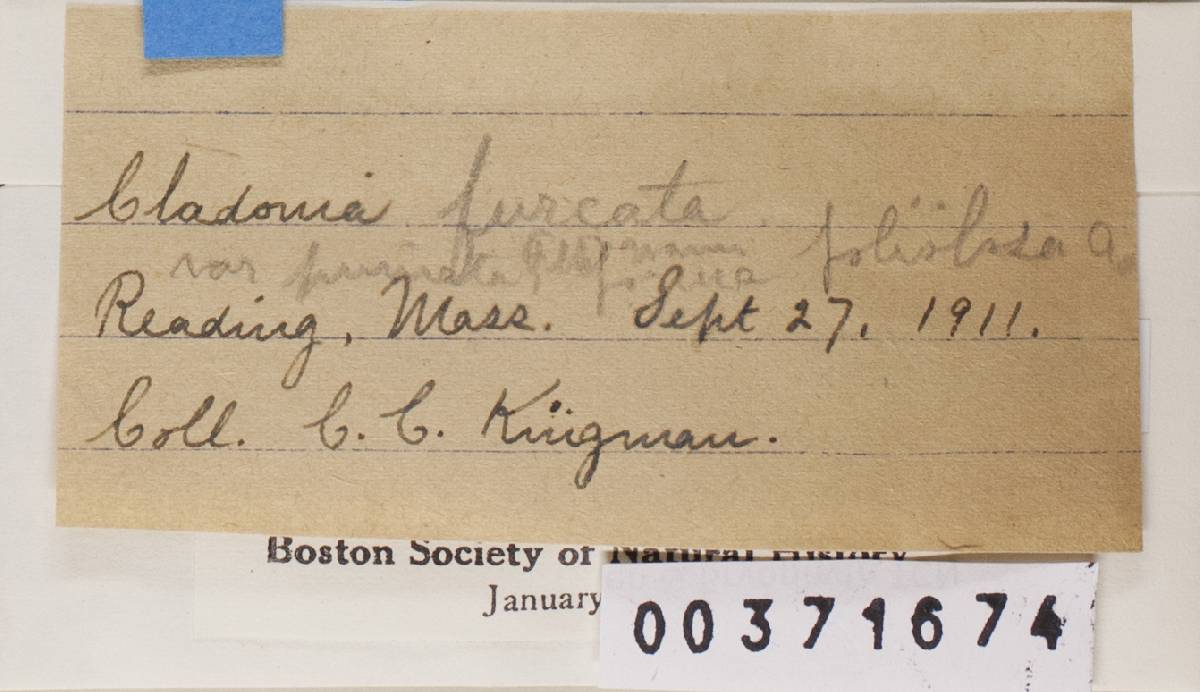 Cladonia furcata
var pinnata foliolosa
Reading, Mass. Sept 27, 1911.
Coll. C. C. Kingman.
Boston Society of Natural History
January
00371674